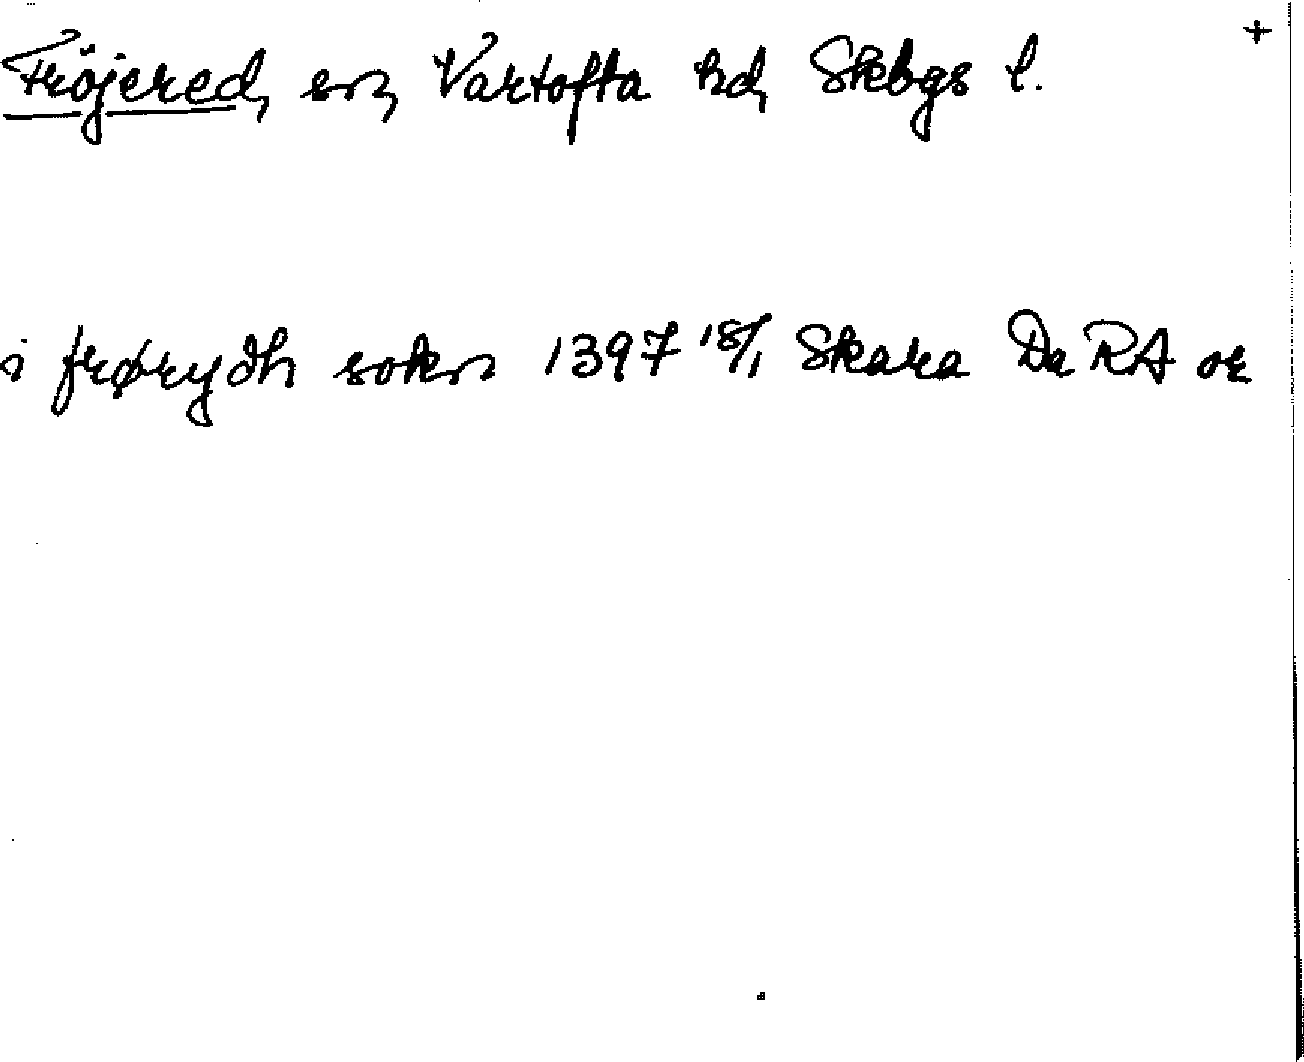 +
Fröjered, sn, Vartofta hd, Skbgs l.
i frørydh sokn 1397 18/1 Skara Da RA or